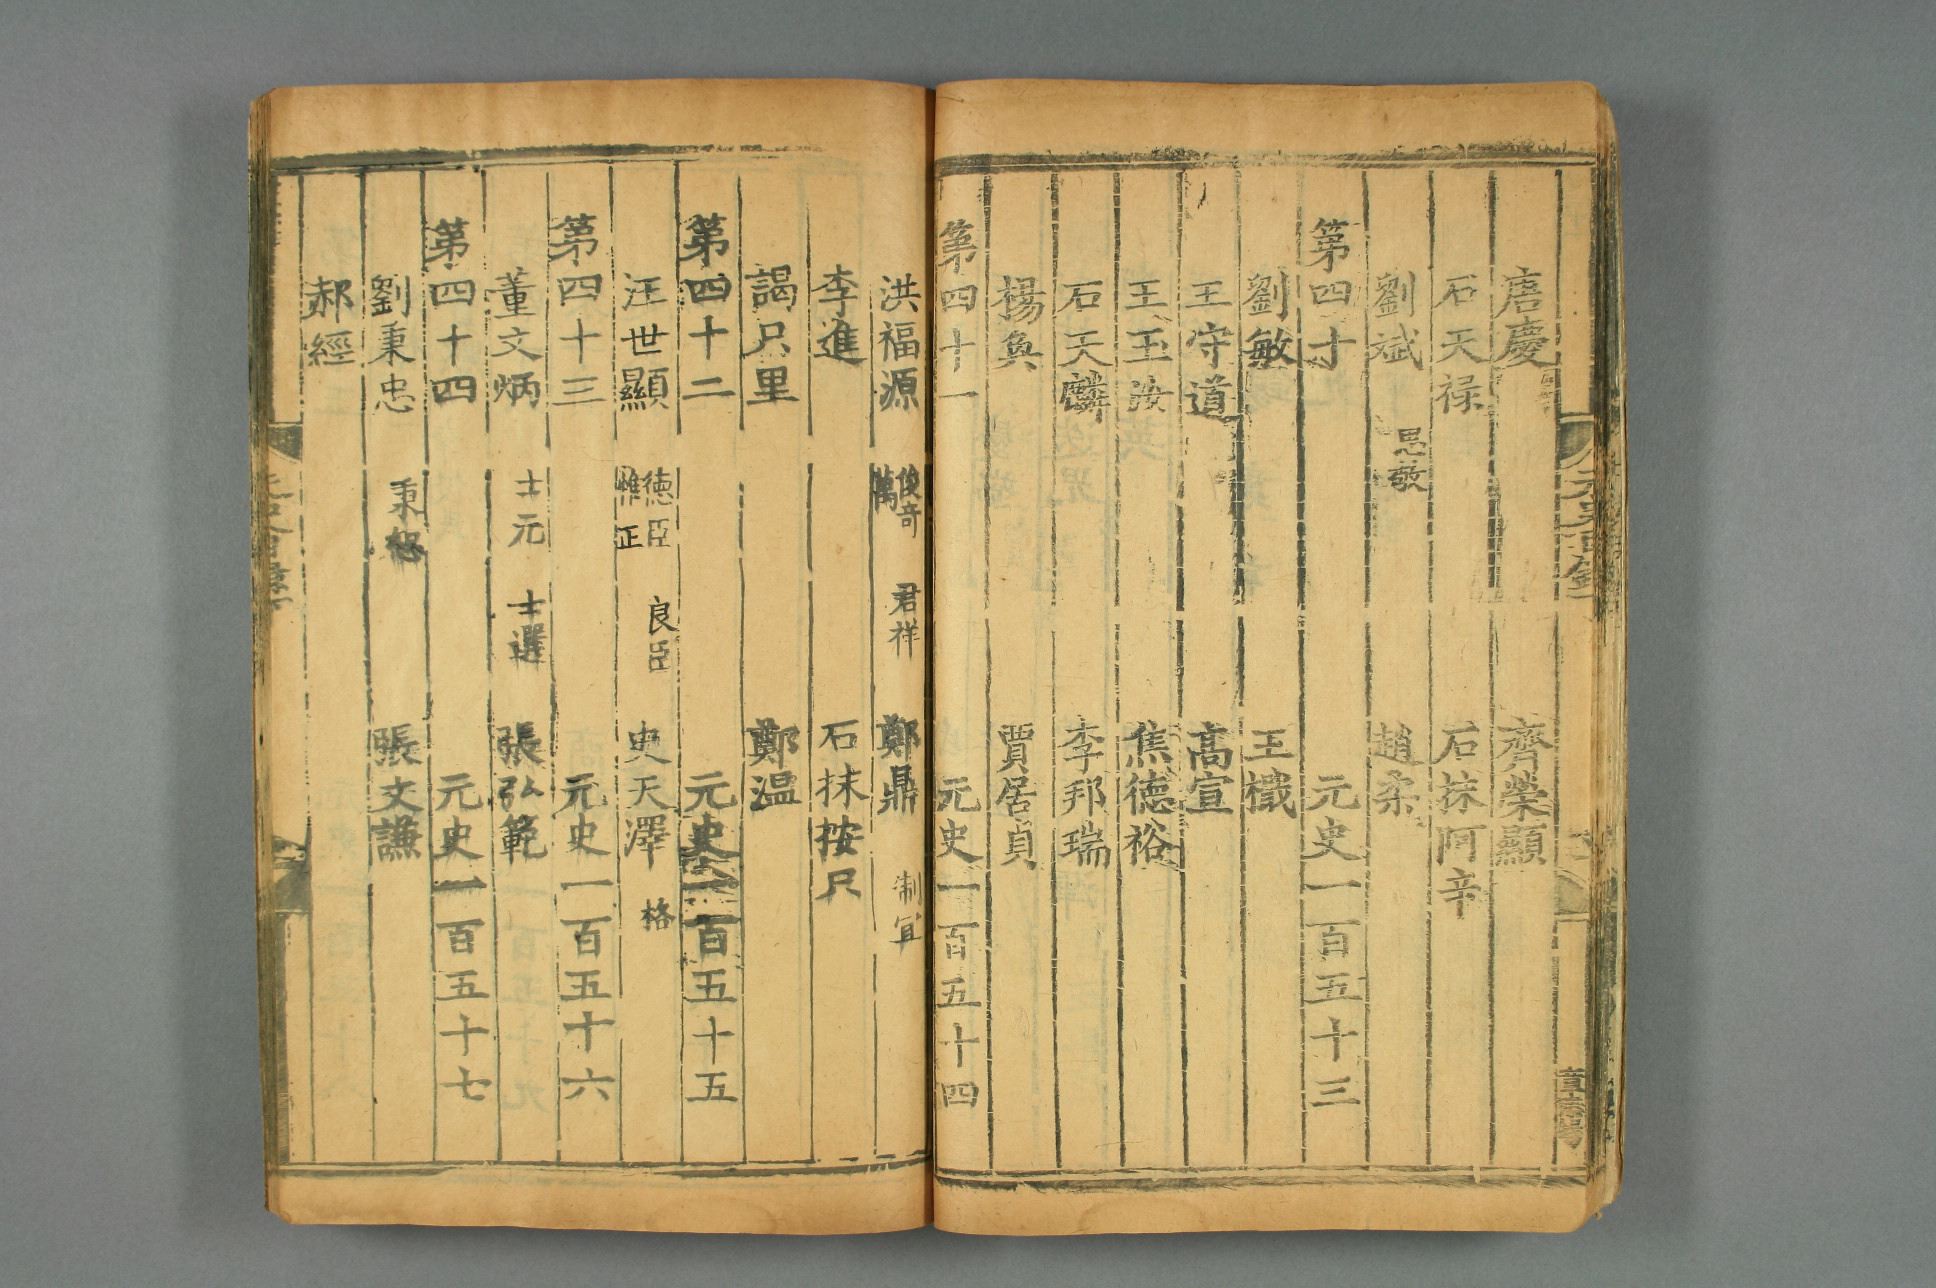 唐慶 齊榮顯
石天禄 石抹阿辛
劉斌 思敬 趙柔
第四十 元史一百五十三
劉敏 王檝
王守道 高宣
王玉汝 焦德裕
石天麟 李邦瑞
楊奐 賈居貞
第四十一 元史一百五十四
洪福源 俊奇 萬 君祥 鄭鼎 制宜
李進 石抹按只
謁只里 鄭温
第四十二 元史一百五十五
汪世顯 德臣 良臣 惟正 史天澤 格
第四十三 元史一百五十六
董文炳 士元 士選 張弘範
第四十四 元史一百五十七
劉秉忠 秉恕 張文謙
郝經